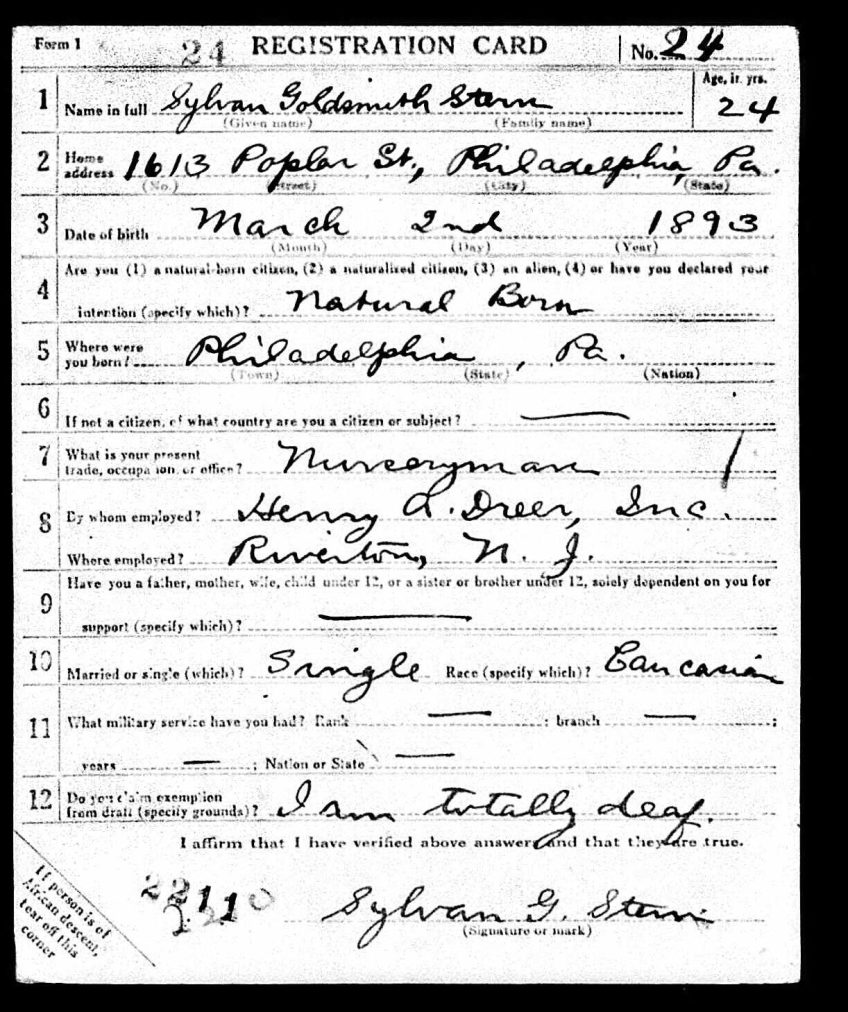 Form 1 24 REGISTRATION CARD No. 24
1 Name in full Sylvan Goldsmith Stern Age, in yrs. 24
(Given name) (Family name)
2 Home address 1613 Poplar St., Philadelphia, Pa.
(No.) (Street) (City) (State)
3 Date of birth March 2nd 1893
(Month) (Day) (Year)
4 Are you (1) a natural-born citizen, (2) a naturalized citizen, (3) an alien, (4) or have you declared your
intention (specify which)? Natural Born
5 Where were you born? Philadelphia, Pa.
(Town) (State) (Nation)
6 If not a citizen, of what country are you a citizen or subject? —
7 What is your present trade, occupation, or office? Nurseryman
8 By whom employed? Henry A. Dreer, Inc.
Where employed? Riverton, N. J.
9 Have you a father, mother, wife, child under 12, or a sister or brother under 12, solely dependent on you for
support (specify which)? —
10 Married or single (which)? Single Race (specify which)? Caucasian
11 What military service have you had? Rank — ; branch — ;
years — ; Nation or State —
12 Do you claim exemption from draft (specify grounds)? I am totally deaf.
I affirm that I have verified above answers and that they are true.
If person is of
African descent,
tear off this
corner
Sylvan G. Stern
(Signature or mark)